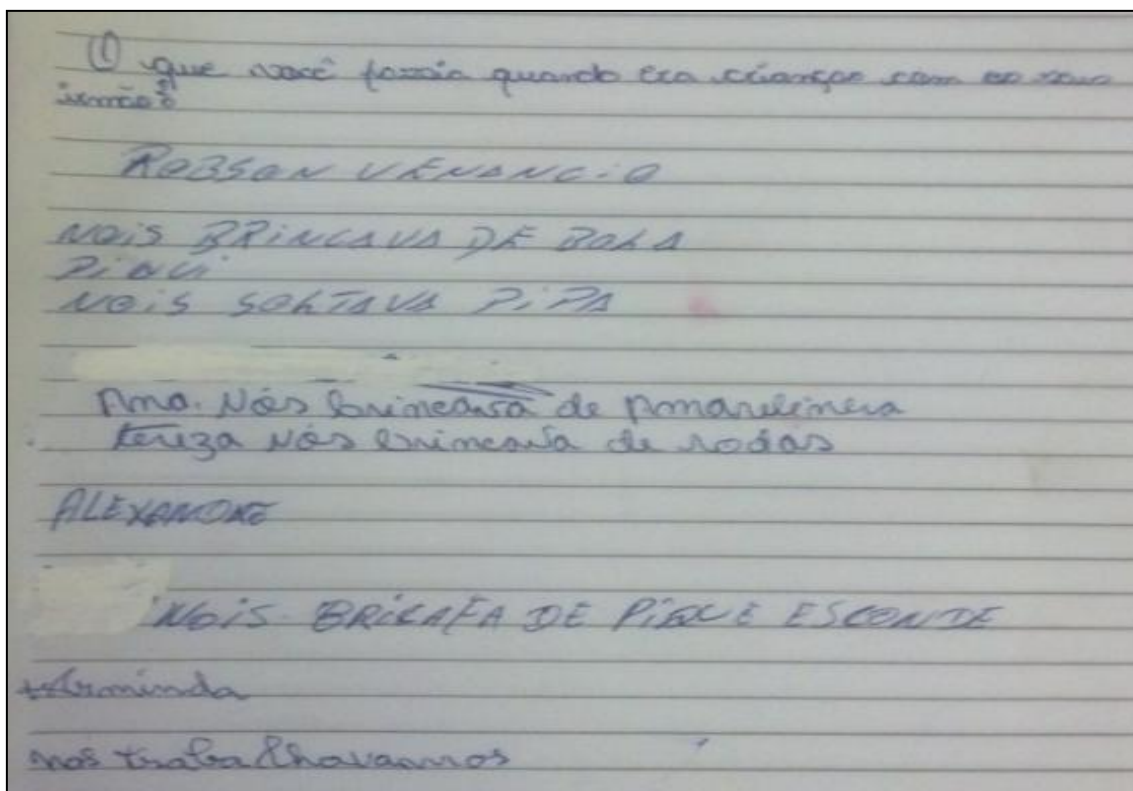 O que você fazia quando era criança com os seus
irmão?
ROBSON VENANCIO
NOIS BRINCAVA DE BOLA
NOIS SOLTAVA PIPA
Ana. Nós brincava de Amarelinera
tereza Nós brincava de rodas
ALEXANDRE
NOIS BRICAFA DE PIQUE ESCONDE
Arminda
nos trabalhavamos